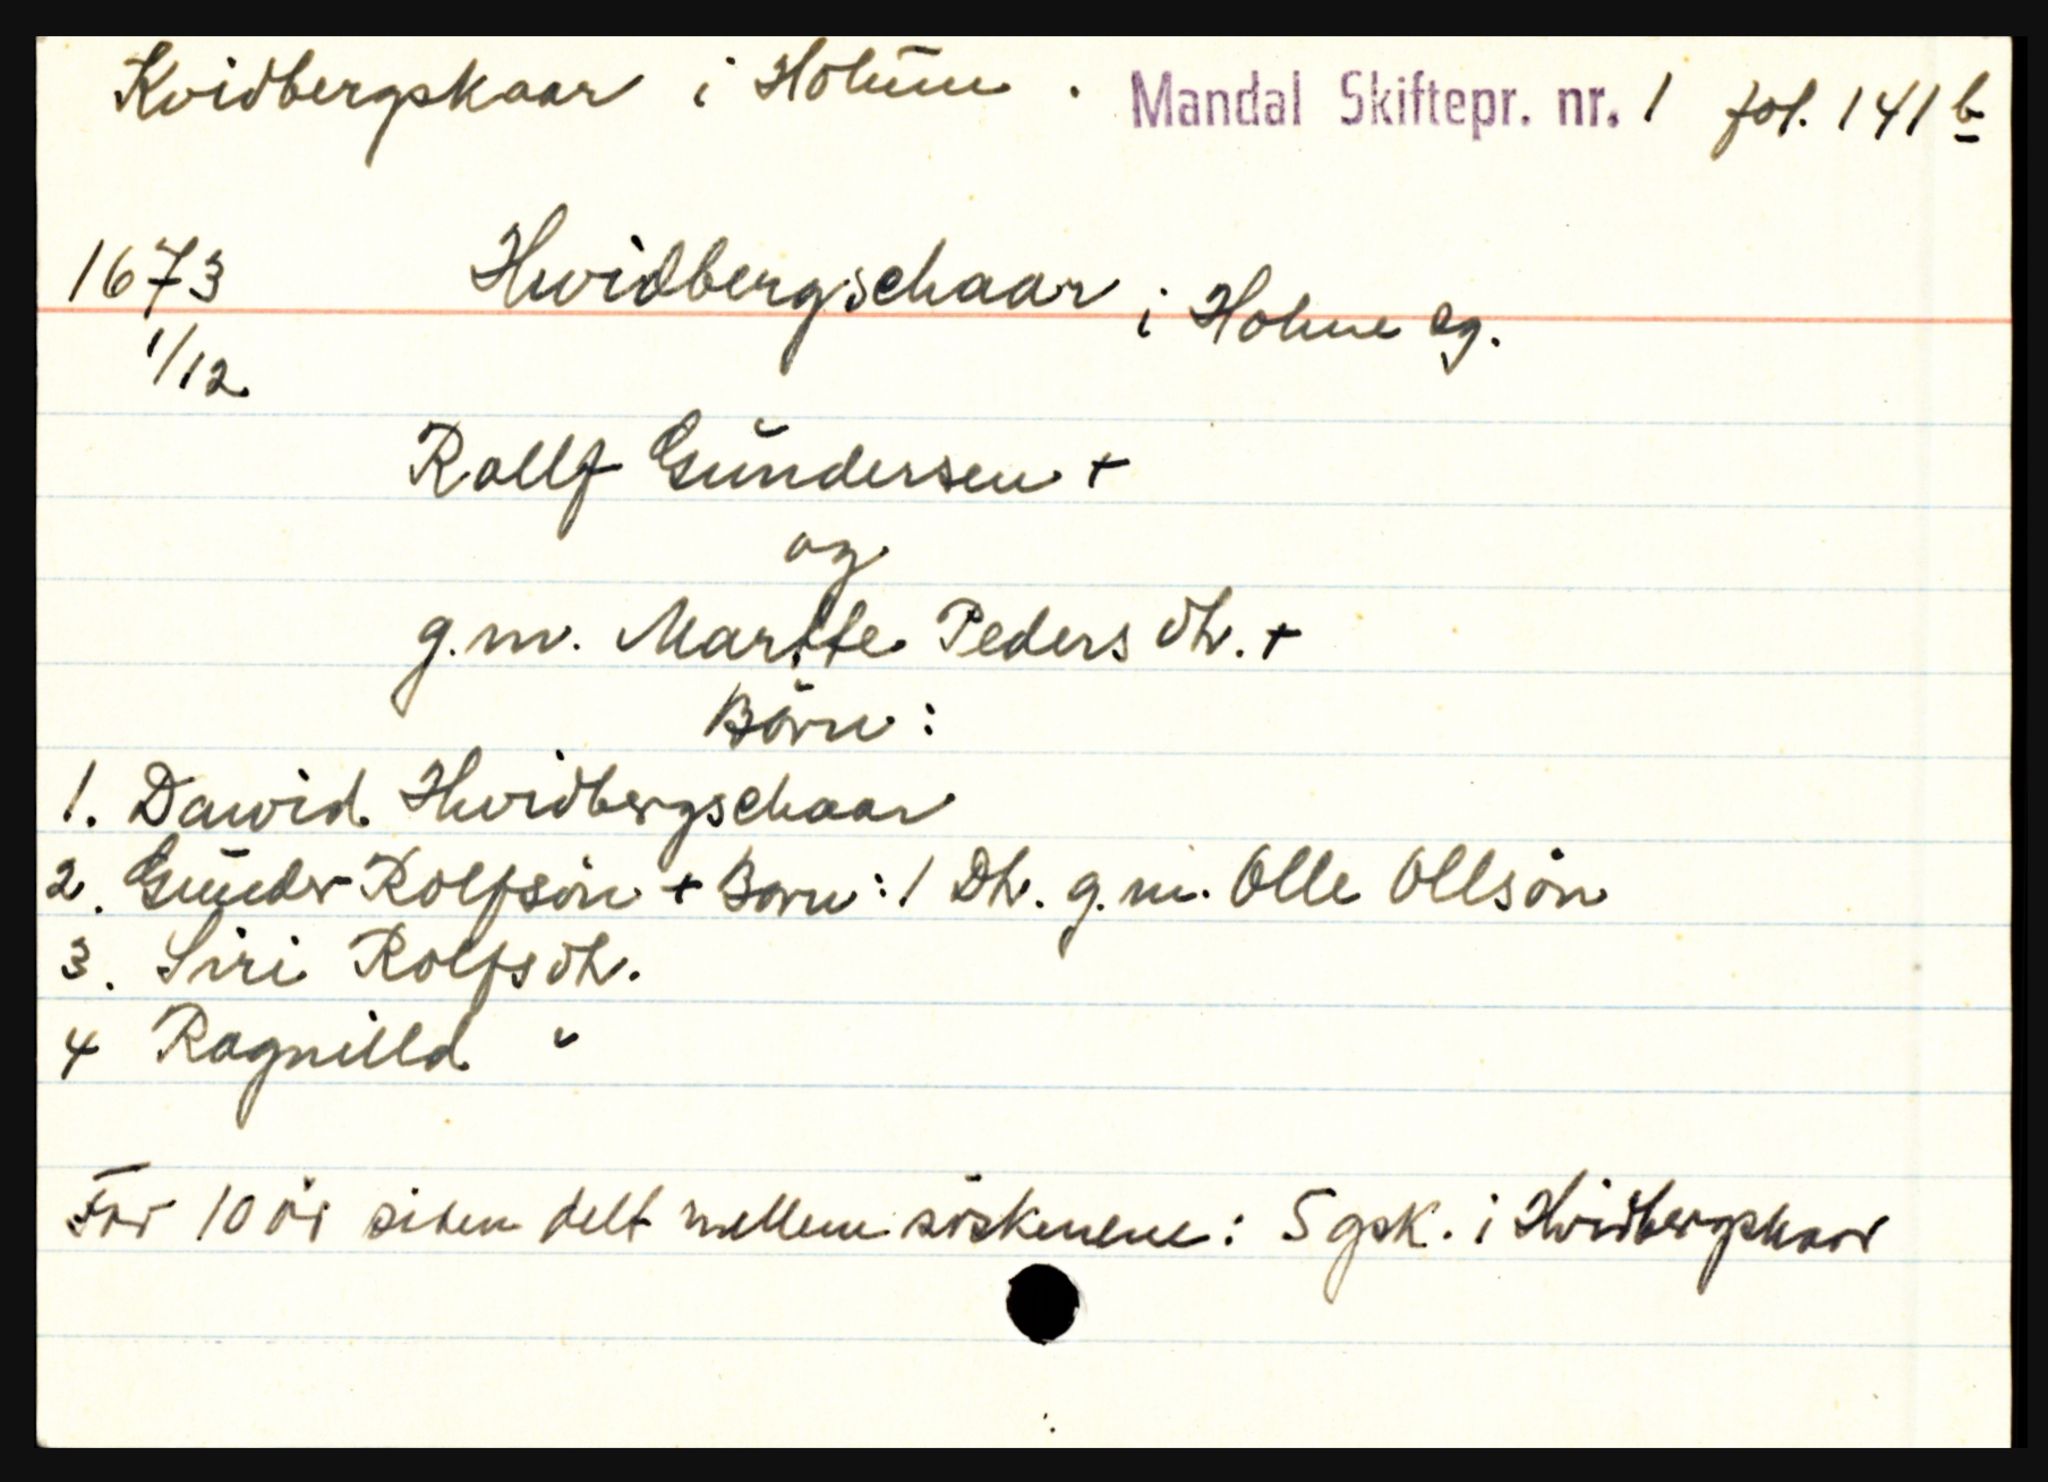 Kvidbergskaar i Holum. Mandal Skiftepr. nr. 1 fol. 141 b
1673 Hwidbergschaar i Holme sg.
1/12
Rollf Gŭndersen +
og
g.m. Martte Peders dh. +
Börn:
1. Dawid Hwidbergschaar
2. Gŭnder Rolfsön + Barn: 1 Dh. g.m. Olle Ollsön
3. Siri Rolfsdh.
4 Ragnilld "
For 10 år siden delt mellem söskenene: 5 gsk. i Hvidbergskaar